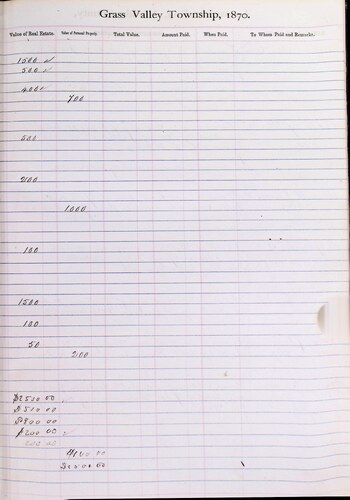 Grass Valley Township, 1870.
Value of Real Estate. Value of Personal Property. Total Value. Amount Paid. When Paid. To Whom Paid and Remarks.
1500
500
4000
700
500
200
1000
100
1500
100
50
200
$2500 00
$200 00